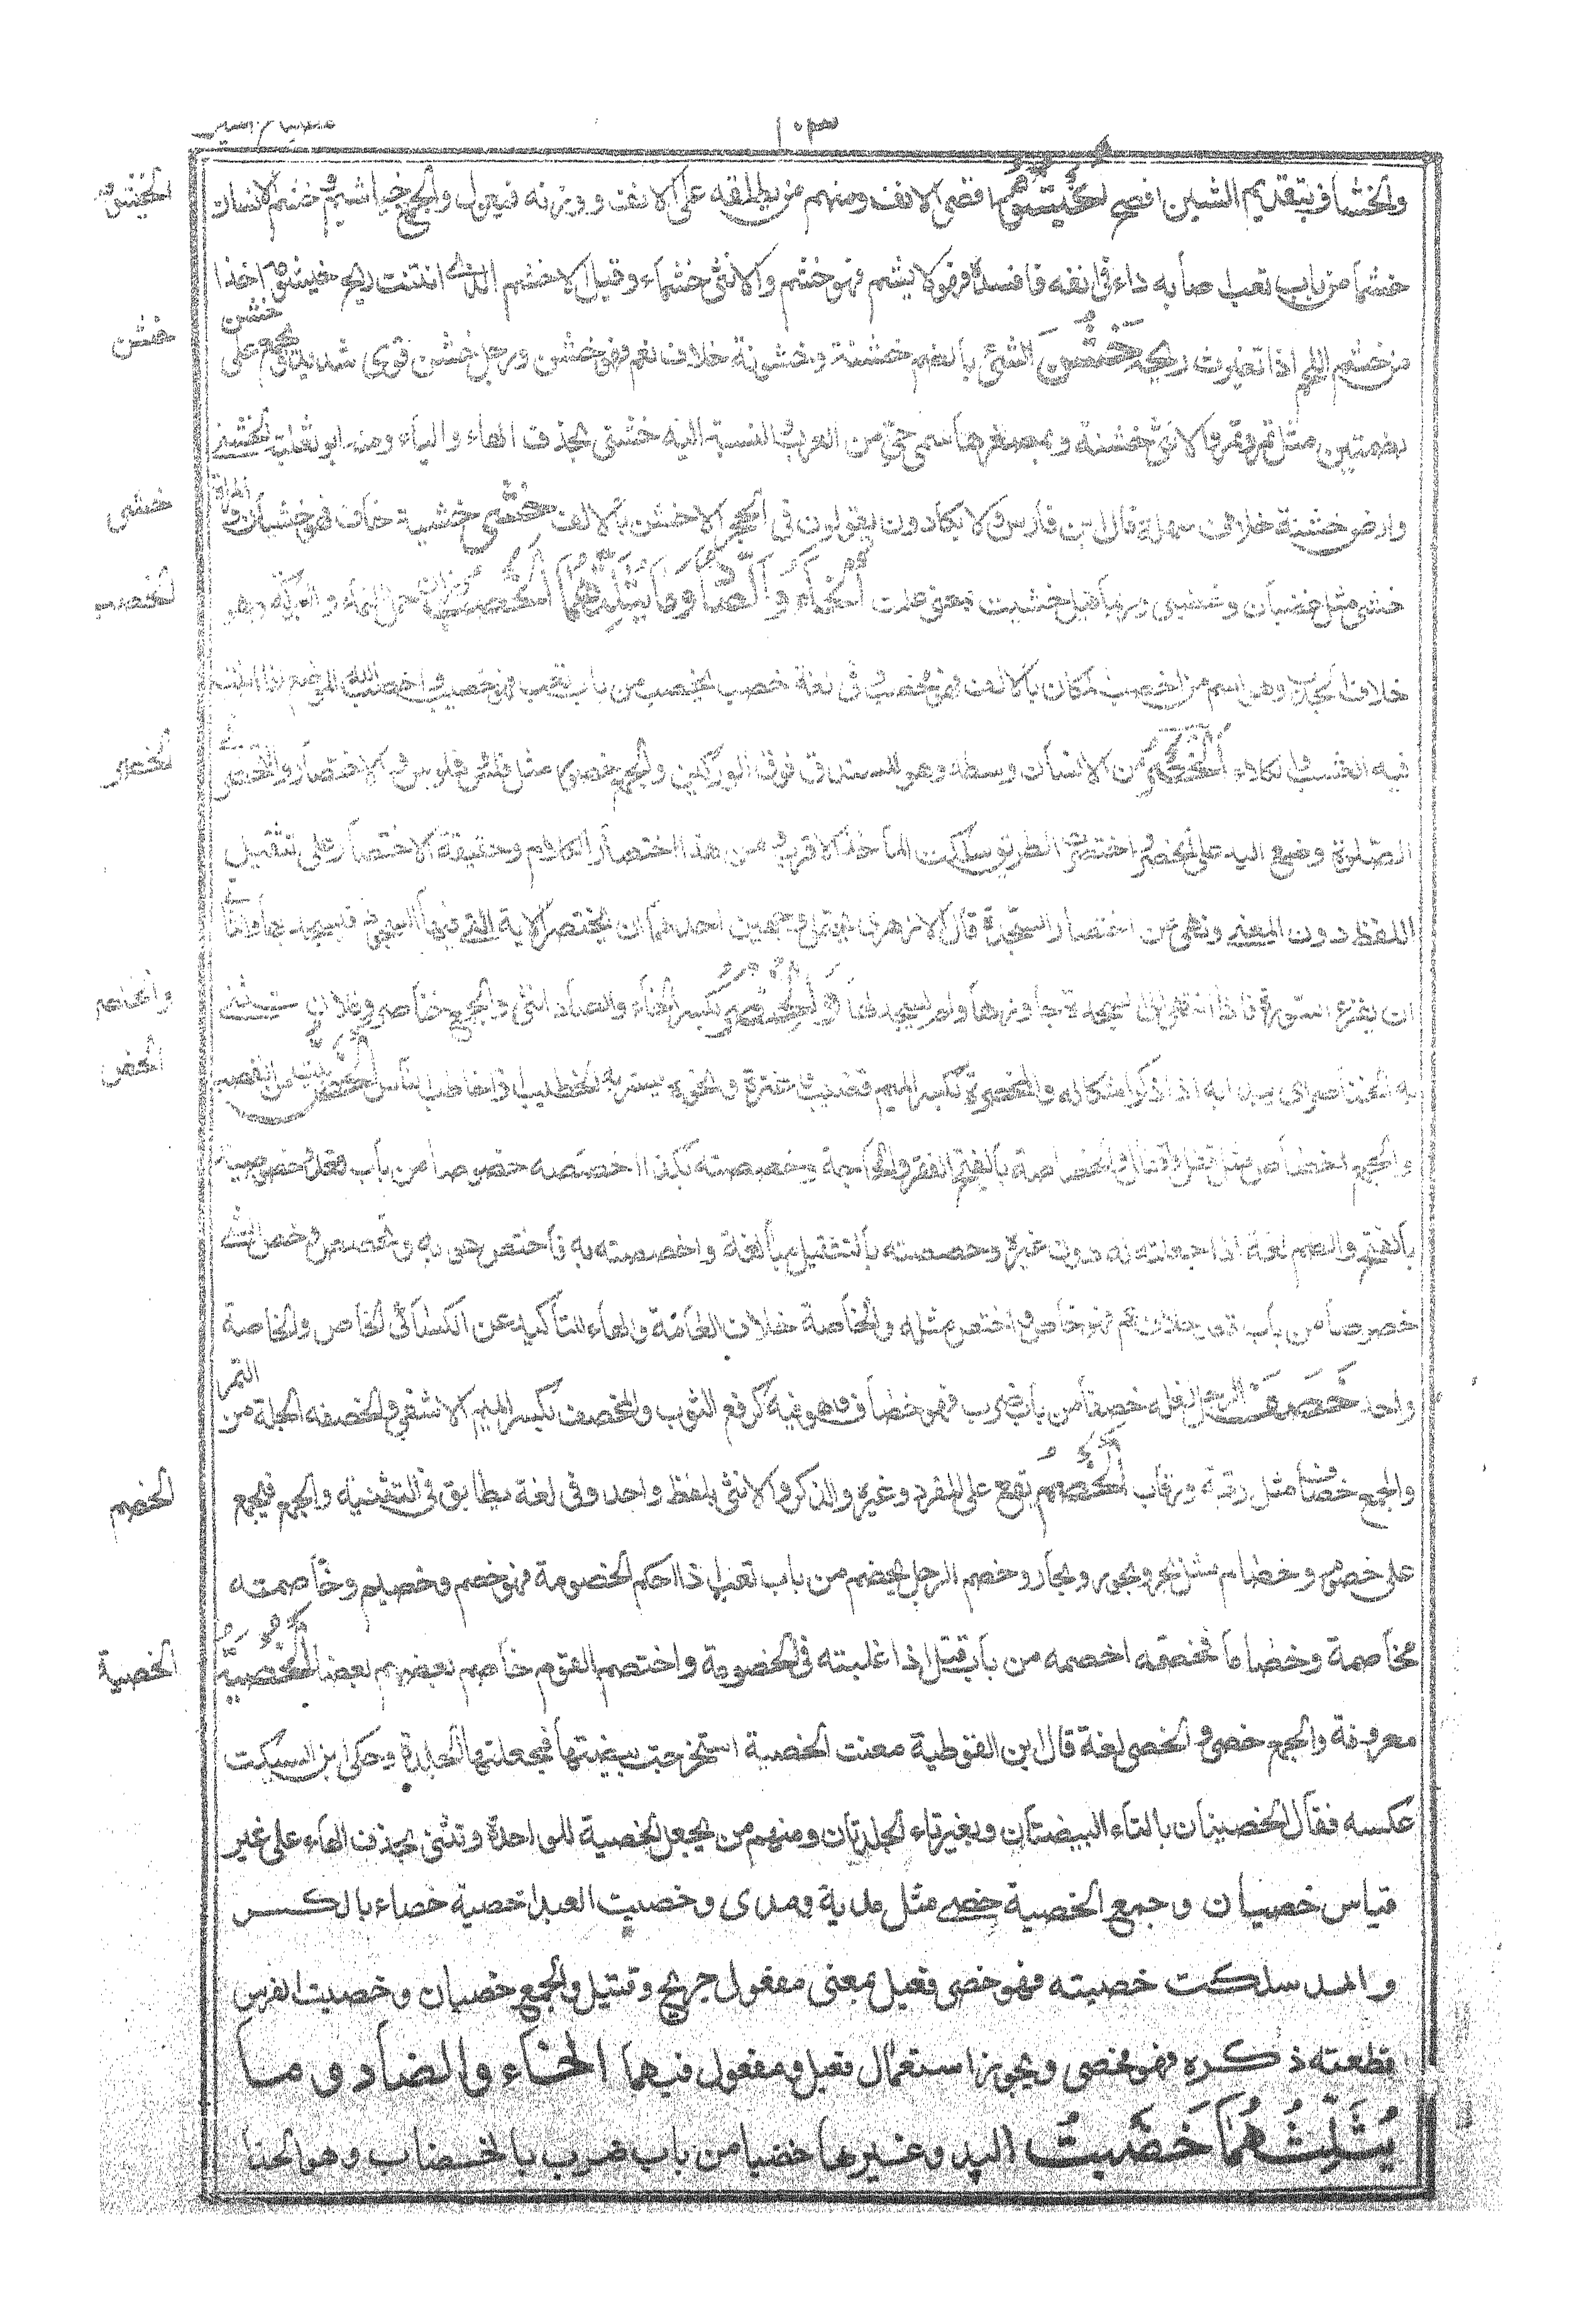 ١٠٣
والخشاف بتقديم الشين افصح الخيشوم اقصى الانف ومنهم من يطلقه على الانف ووزنه فيعول والجمع خياشيم وخشم الانسان
الخيشوم
خشما من باب تعب اصابه داء فى انفه فافسده فهو لا يشم فهو اخشم والانثى خشماء وقيل الاخشم الذى انتنت ريح خيشومه اخذا
من خشم اللحم اذا تغيرت ريحه خَشُنَ الشئ بالضم خشنة وخشونة خلاف نعم فهو خشن ورجل خشن قوى شديد ويجمع على خشن
خشن
بضمتين مثل نمر ونمر والانثى خشنة وبمصغرها سمى حى من العرب والنسبة اليه خشنى بحذف الهاء والياء ومنه ابو ثعلبة الخشنى
وارض خشنة خلاف سهلة قال ابن فارس ولا يكادون يقولون فى الحجر الا اخشن بالالف خشى خشية خاف فهو خشيان والمراة
خشى
خشيى مثل غضبان وغضبى وربما قيل خشيت بمعنى علمت الخَاءُ وَالصَّادُ وَمَا يَثْلِثُهُمَا الخصب وزان حمل النماء والبركة وهو
الخصب
خلاف الجدب وهو اسم من اخصب المكان بالالف فهو مخصب وفى لغة خصب يخصب من باب تعب فهو خصيب واخصب الله الموضع اذا انبت
فيه العشب والكلاء الخَصْرُ من الانسان وسطه وهو المستدق فوق الوركين والجمع خصور مثل فلس وفلوس والاختصار والتخصر فى
الخصر
الصلوة وضع اليد على الخصر واختصرت الطريق سلكت الماخذ الاقرب ومن هذا اختصار الكلام وحقيقة الاختصار على تقليل
اللفظ دون المعنى ونهى عن اختصار السجدة قال الازهرى يحتمل وجهين احدهما ان يختصر الاية التى فيها السجود فيسجد بها والثانى
ان يقرء السورة فاذا انتهى الى السجدة جاوزها ولم يسجد لها وَالخِنْصِرُ بكسر الخاء والصاد انثى والجمع خناصر وفلان تثنى
والخنصر
به الخناصر اى يبدا به اذا ذكر اشكاله والمخصرة بكسر الميم قضيب او عنزة ونحوه يشير به الخطيب اذا خاطب الناس الخُصُّ بيت من القصب
الخص
والجمع اخصاص مثل قفل واقفال والخصاصة بالفتح الفقر والحاجة وخصصته بكذا اخصصه خصوصا من باب قعد وخصوصية
بالفتح والضم لغة اذا جعلته له دون غيره وخصصته بالتثقيل مبالغة واخصصته به فاختص هو به وتخصص وخص الشئ
خصوصا من باب قعد خلاف عم فهو خاص واختص مثله والخاصة خلاف العامة والهاء للتاكيد عن الكسائى الخاص والخاصة
واحد خَصَفَ الرجل نعله خصفا من باب ضرب فهو خصاف وهو فيه كرقع الثوب والمخصف بكسر الميم الاشفى والخصفه الجلة من التمر
والجمع خصاف مثل رقبة ورقاب الخَصْمُ يقع على المفرد وغيره والذكر والانثى بلفظ واحد وفى لغة يطابق فى التثنية والجمع فيجمع
الخصم
على خصوم وخصام مثل بحر وبحور وبحار وخصم الرجل يخصم من باب تعب اذا احكم الخصومة فهو خصم وخصيم وخاصمته
مخاصمة وخصاما فخصمته اخصمه من باب قتل اذا غلبته فى الخصومة واختصم القوم خاصم بعضهم بعضا الخُصْيَةُ
الخصية
معروفة والجمع خصى والخصى لغة قال ابن القوطية معنت الخصية استخرجت بيضتها فجعلتها الجلدة وحكى ابن السكيت
عكسه فقال الخصيتان بالتاء البيضتان وبغير تاء الجلدتان ومنهم من يجعل الخصية للواحدة وتثنى بحذف الهاء على غير
قياس خصيان وجمع الخصية خصى مثل مدية ومدى وخصيت العبد اخصية خصاء بالكسر
والمد سللت خصيته فهو خصى فعيل بمعنى مفعول جريح وقتيل والجمع خصيان وخصيت الفرس
قطعته ذكره فهو مخصى ويجوز استعمال فعيل ومفعول فيهما الخاء والضاد وما
يُثَلِثُهُمَا خَضَبتُ اليد وغيرها خضبا من باب ضرب بالخضاب وهو الحنا